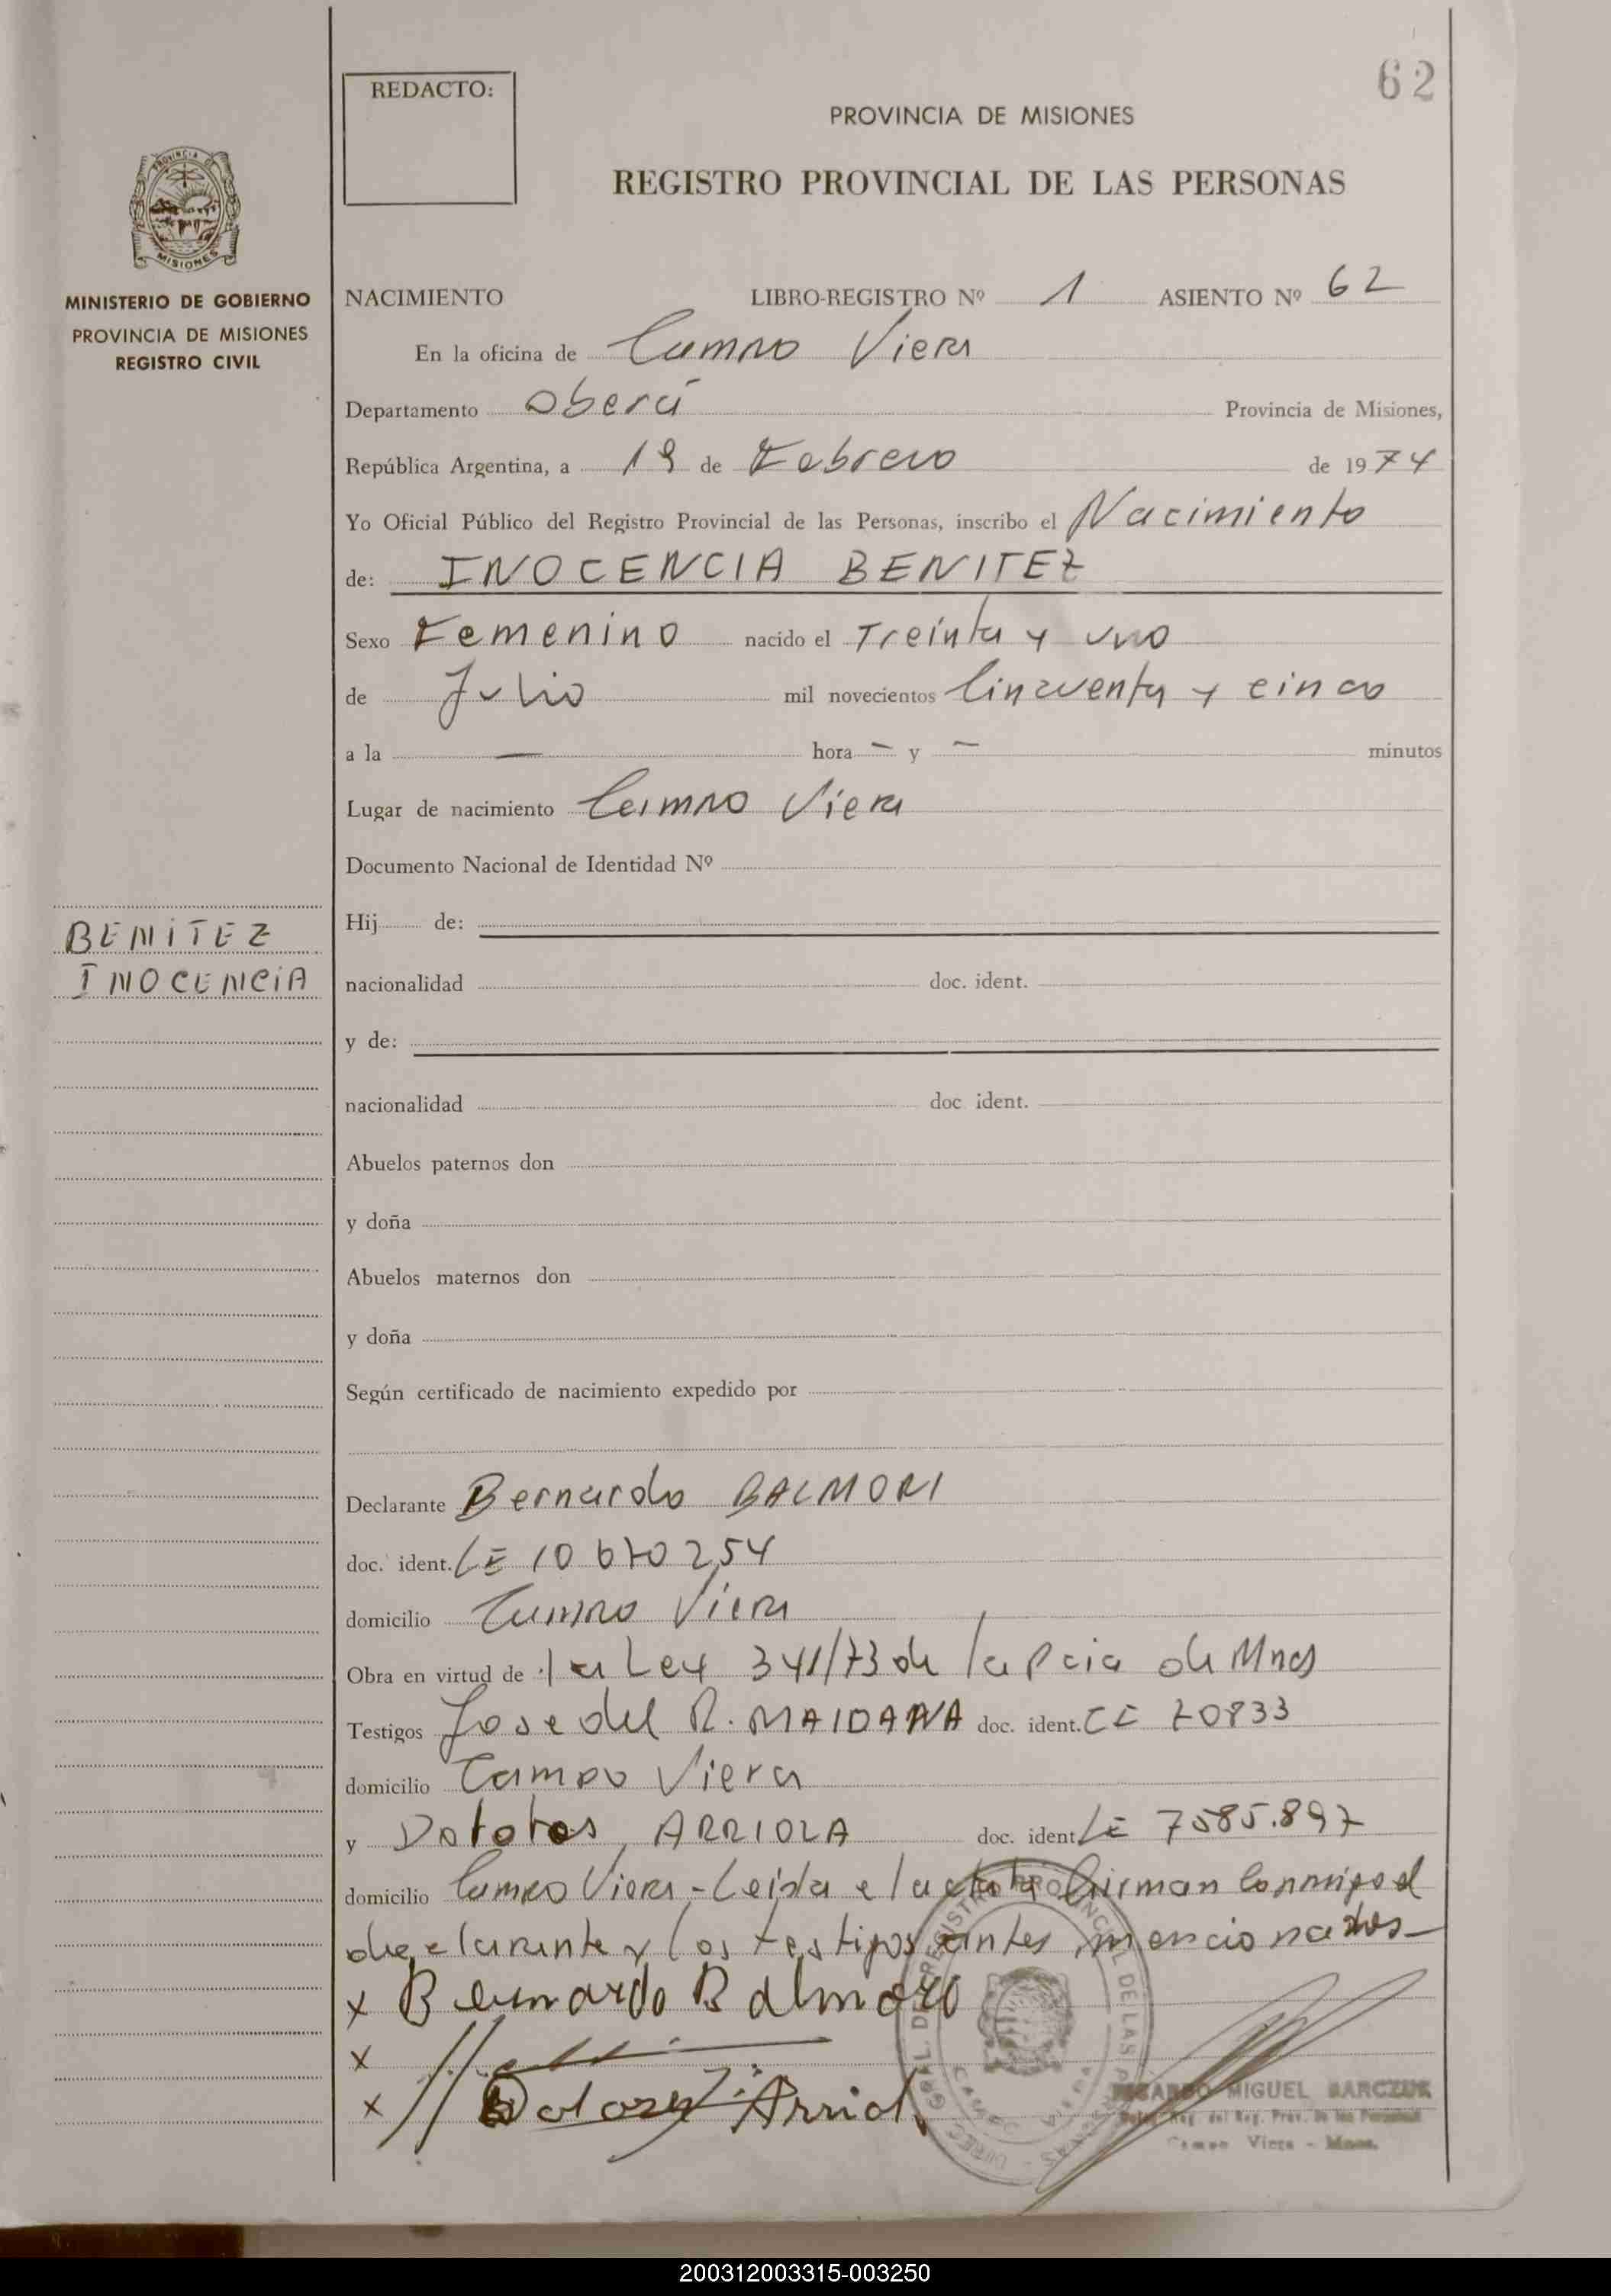 62
REDACTO:
PROVINCIA DE MISIONES
REGISTRO PROVINCIAL DE LAS PERSONAS
PROVINCIA DE
MISIONES
MINISTERIO DE GOBIERNO
PROVINCIA DE MISIONES
REGISTRO CIVIL
NACIMIENTO LIBRO-REGISTRO Nº 1 ASIENTO Nº 62
En la oficina de Campo Viera
Departamento Oberá Provincia de Misiones,
República Argentina, a 19 de Febrero de 1974
Yo Oficial Público del Registro Provincial de las Personas, inscribo el Nacimiento
de: INOCENCIA BENITEZ
Sexo Femenino nacido el Treinta y uno
de Julio mil novecientos Cincuenta y cinco
a la — hora – y – minutos
Lugar de nacimiento Campo Viera
Documento Nacional de Identidad Nº
BENITEZ
INOCENCIA
Hij de:
nacionalidad doc. ident.
y de:
nacionalidad doc ident.
Abuelos paternos don
y doña
Abuelos maternos don
y doña
Según certificado de nacimiento expedido por
Declarante Bernardo BALMORI
doc. ident. LE 10 670 254
domicilio Campo Viera
Obra en virtud de la Ley 341/73 de la Pcia de Mnes
Testigos Jose del R. MAIDANA doc. ident. CI 70833
domicilio Campo Viera
y Dolores ARRIOLA doc. ident LE 7585.897
domicilio Campo Viera - Leida el acta la firman conmigo el
declarante y los testigos antes mencionados—
x Bernardo Balmori
x
x Arriol
MIGUEL BARCZUK
Campo Viera - Mnes.
200312003315-003250